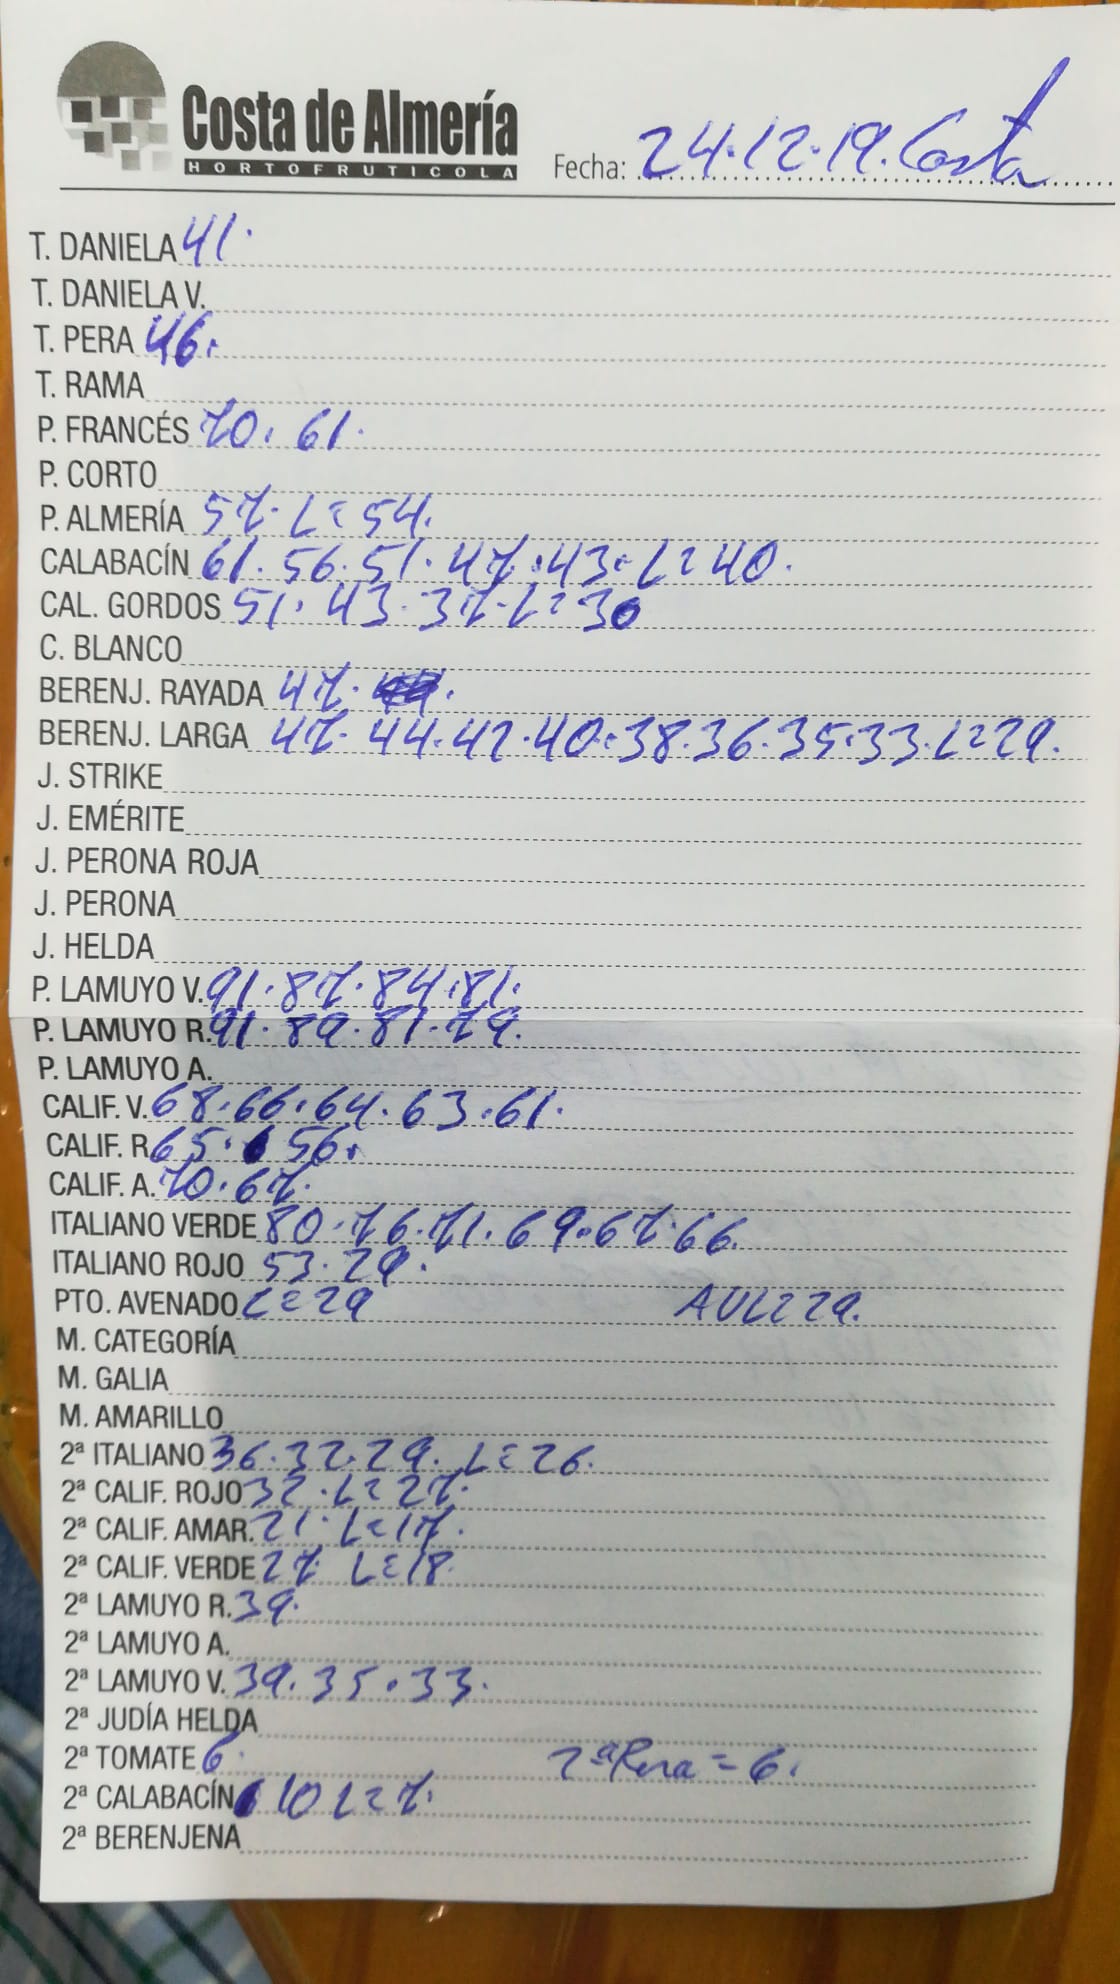 Costa de Almería
HORTOFRUTICOLA
Fecha: 24.12.19. Costa
T. DANIELA 41.
T. DANIELA V.
T. PERA 46.
T. RAMA
P. FRANCÉS 70. 61.
P. CORTO
P. ALMERÍA 57. L=54.
CALABACÍN 61. 56. 51. 47. 43. L=40.
CAL. GORDOS 51. 43. 37. L=30
C. BLANCO
BERENJ. RAYADA 47.
BERENJ. LARGA 47. 44. 42. 40. 38. 36. 35. 33. L=29.
J. STRIKE
J. EMÉRITE
J. PERONA ROJA
J. PERONA
J. HELDA
P. LAMUYO V. 91. 87. 84. 81.
P. LAMUYO R. 91. 89. 81. 79.
P. LAMUYO A.
CALIF. V. 68. 66. 64. 63. 61.
CALIF. R. 65. 56.
CALIF. A. 70. 67.
ITALIANO VERDE 80. 76. 71. 69. 67. 66.
ITALIANO ROJO 53. 29.
PTO. AVENADO L=29 AVL=29.
M. CATEGORÍA
M. GALIA
M. AMARILLO
2ª ITALIANO 36. 32. 29. L=26.
2ª CALIF. ROJO 32. L=27.
2ª CALIF. AMAR. 21. L=17.
2ª CALIF. VERDE 27 L=18.
2ª LAMUYO R. 39.
2ª LAMUYO A.
2ª LAMUYO V. 39. 35. 33.
2ª JUDÍA HELDA
2ª TOMATE 6. 2ª Pera = 6.
2ª CALABACÍN 10 L=7.
2ª BERENJENA